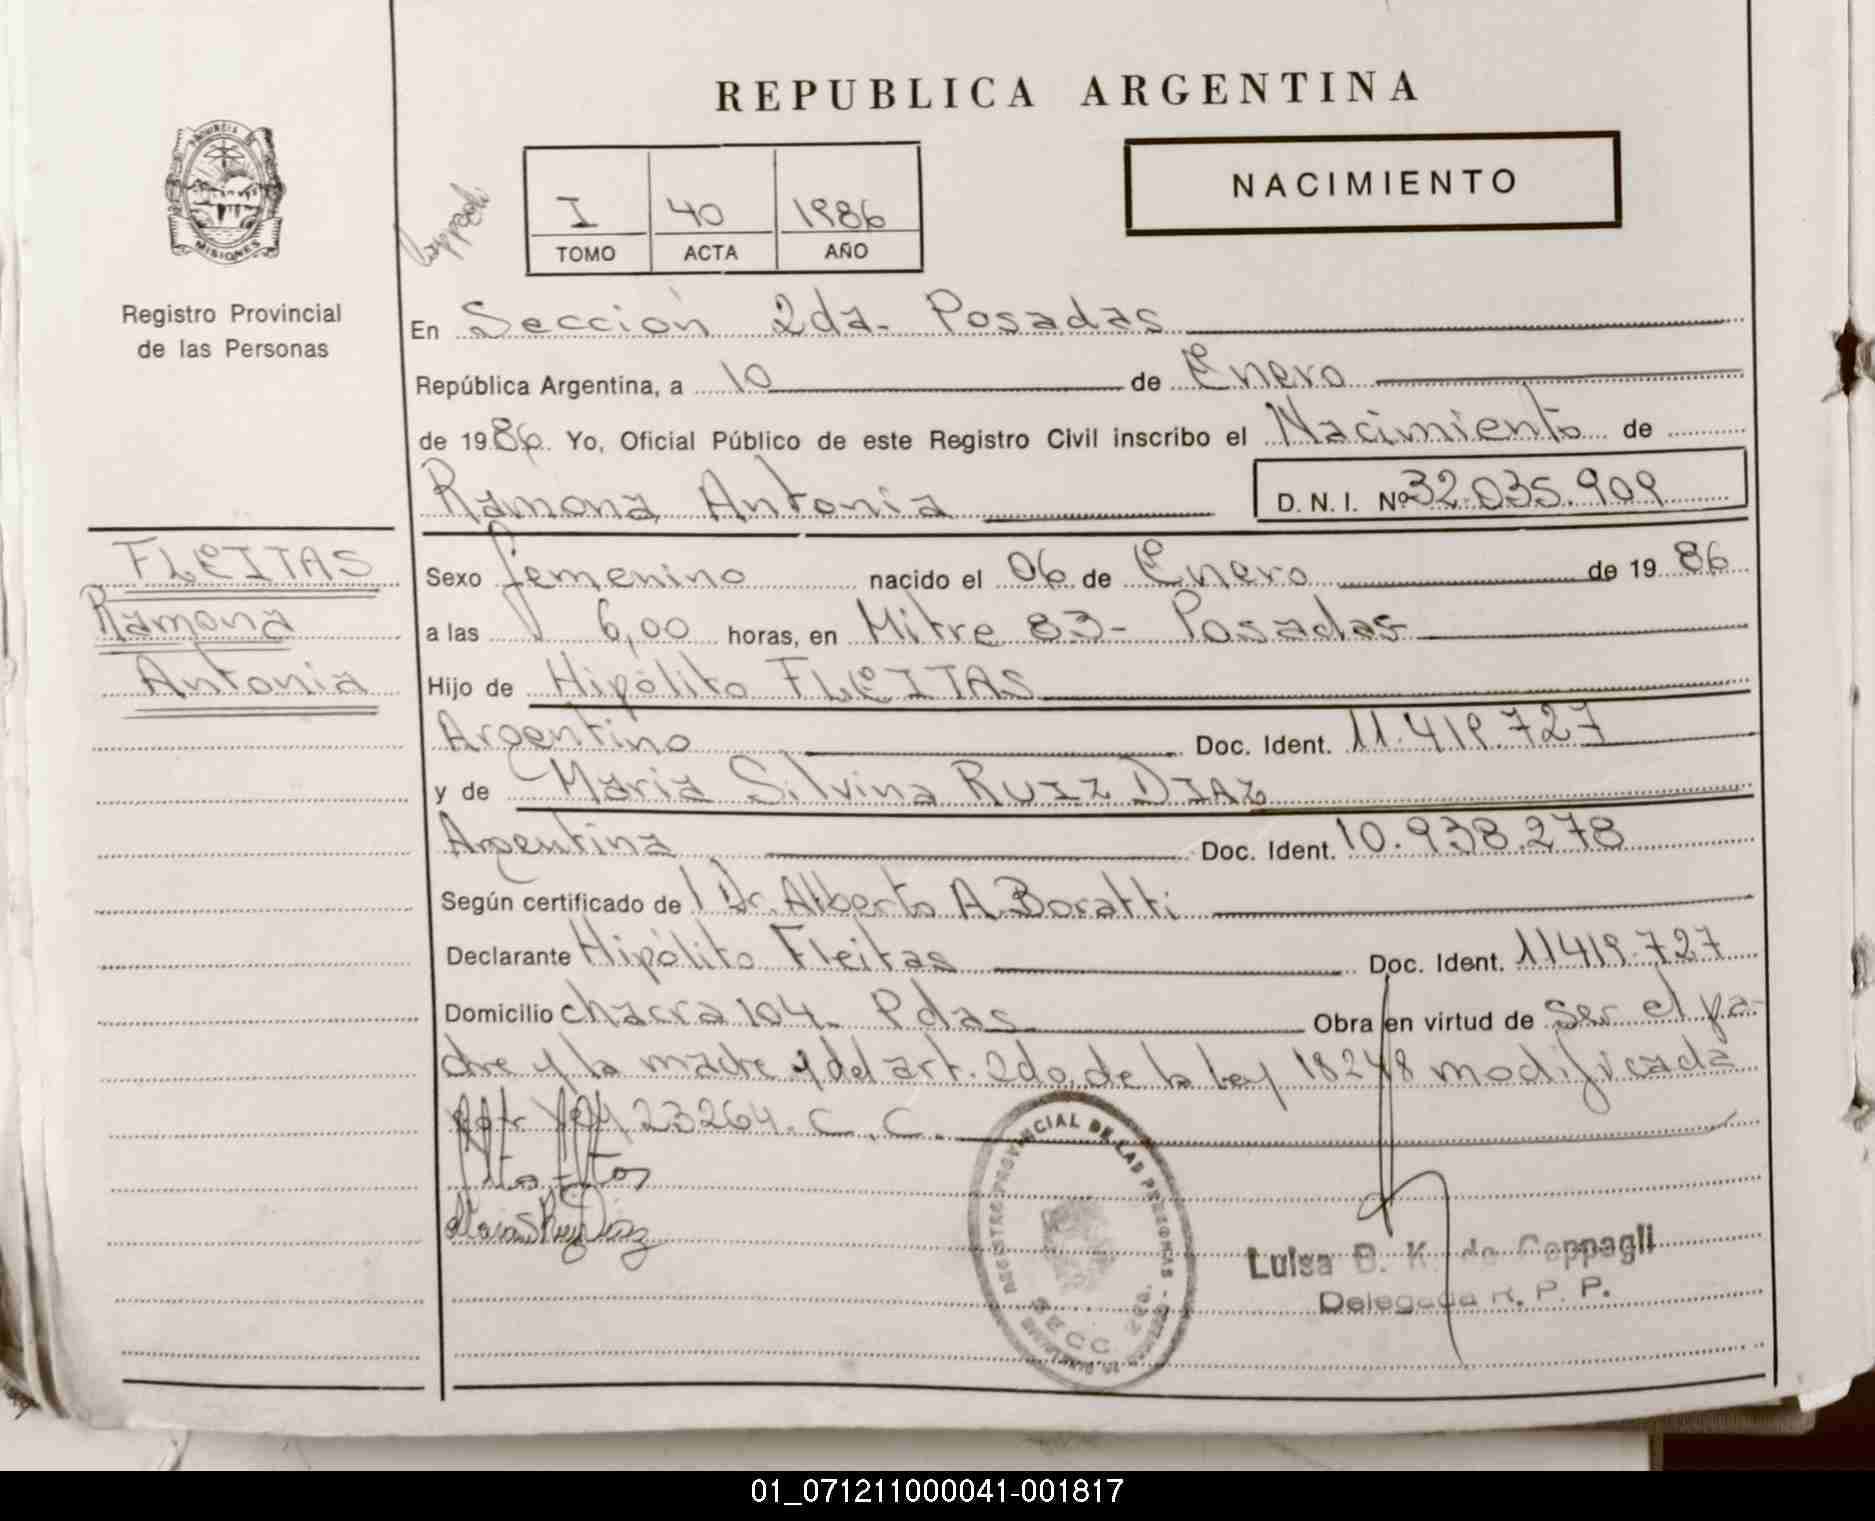 REPUBLICA ARGENTINA
PROVINCIA DE
MISIONES
Registro Provincial
de las Personas
I 40 1986
TOMO ACTA AÑO
NACIMIENTO
En Sección 2da. Posadas
República Argentina, a 10 de Enero
de 1986. Yo, Oficial Público de este Registro Civil inscribo el Nacimiento de
Ramona Antonia D. N. I. Nº 32.035.909
FLEITAS
Ramona
Antonia
Sexo femenino nacido el 06 de Enero de 19 86
a las 6,00 horas, en Mitre 83- Posadas
Hijo de Hipólito FLEITAS
Argentino Doc. Ident. 11.419.727
y de Maria Silvina RUIZ DIAZ
Argentina Doc. Ident. 10.938.278
Según certificado de Dr. Alberto A. Boratti
Declarante Hipólito Fleitas Doc. Ident. 11419.727
Domicilio chacra 104. Pdas Obra en virtud de ser el pa-
dre y la madre y del art. 2do. de la Ley 18248 modificada
por Ley 23264. C.C.
Maria S Ruiz Diaz
REGISTRO PROVINCIAL DE LAS PERSONAS
SECC 2da.
Luisa B. K. de Coppagli
Delegada R. P. P.
01_071211000041-001817